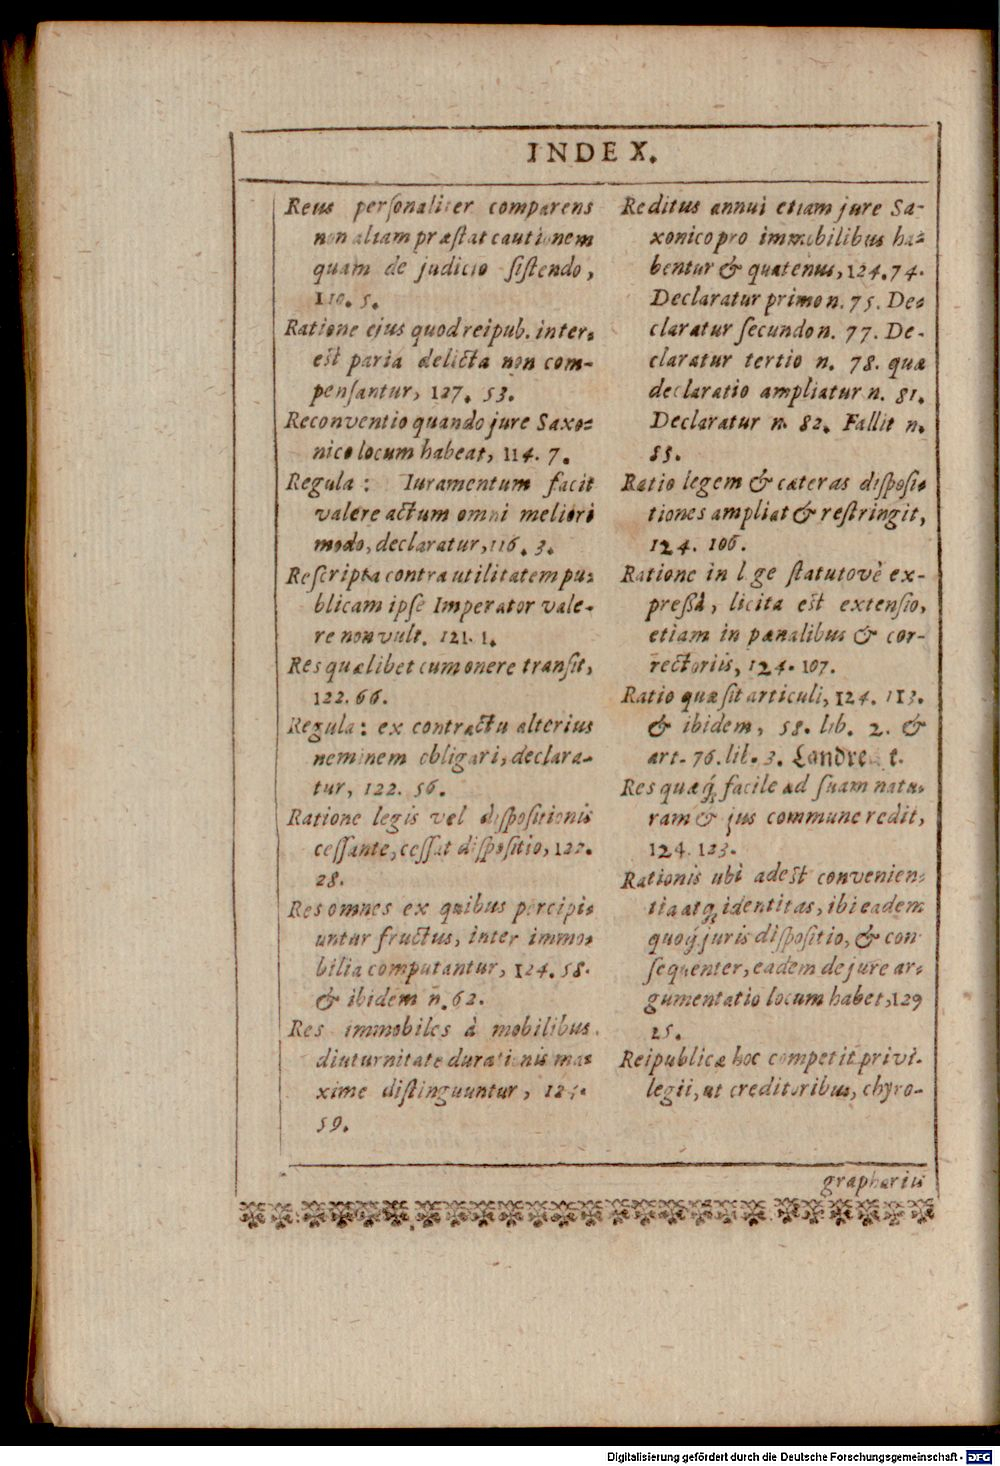 INDEX.
Reus personaliter comparens
non aliam præstat cautionem
quam de judicio sistendo,
110. 5.
Ratione ejus quod reipub. inter-
est paria delicta non com-
pensantur, 127. 53.
Reconventio quando jure Saxo-
nico locum habeat, 114. 7.
Regula: Iuramentum facit
valere actum omni meliori
modo, declaratur, 116. 3.
Rescripta contra utilitatem pu-
blicam ipse Imperator vale-
re non vult. 121. 1.
Res quælibet cum onere transit,
122. 66.
Regula: ex contractu alterius
neminem obligari, declara-
tur, 122. 56.
Ratione legis vel dispositionis
cessante, cessat dispositio, 122.
28.
Res omnes ex quibus percipi-
untur fructus, inter immo-
bilia computantur, 124. 58.
& ibidem n. 62.
Res immobiles à mobilibus
diuturnitate durationis ma-
xime distinguuntur, 124.
59.
Reditus annui etiam jure Sa-
xonico pro immobilibus ha-
bentur & quatenus, 124. 74.
Declaratur primo n. 75. De-
claratur secundo n. 77. De-
claratur tertio n. 78. quæ
declaratio ampliatur n. 81.
Declaratur n. 82. Fallit n.
85.
Ratio legem & cæteras dispositi-
tiones ampliat & restringit,
124. 106.
Ratione in l ge statutovè ex-
pressâ, licita est extensio,
etiam in pœnalibus & cor-
rectoriis, 124. 107.
Ratio quæ sit articuli, 124. 113.
& ibidem, 58. lib. 2. &
art. 76. lib. 3. Landre t.
Res quæq; facile ad suam natu-
ram & jus commune redit,
124. 123.
Rationis ubi adest convenien-
tia atq; identitas, ibi eadem
quoq; juris dispositio, & con-
sequenter, eadem de jure ar-
gumentatio locum habet, 129
25.
Reipublicæ hoc competit privi-
legii, ut creditoribus, chyro-
grapharis
Digitalisierung gefördert durch die Deutsche Forschungsgemeinschaft - DFG